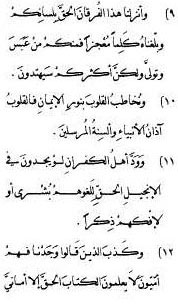 ٩) وَأَنْزَلْنَا هَذَا الْفُرْقَانَ الْحَقَّ بِلِسَانِكُمْ
وَبَلَّغْنَاهُ كَلِماً مُعْجِزاً فَمِنْكُمْ مَنْ عَبَسَ
وَتَوَلَّى وَلَكِنَّ أَكْثَرَكُمْ سَيَهْتَدُونَ .
١٠) وَنُخَاطِبُ الْقُلُوبَ بِنُورِ الإِيمَانِ فَالْقُلُوبُ
آذَانُ الأَنْبِيَاءِ وَأَلْسِنَةُ الْمُرْسَلِينَ .
١١) وَوَدَّ أَهْلُ الْكُفْرَانِ لَوْ يَجِدُونَ فِي
الإِنْجِيلِ الْحَقِّ لِلَغْوِهِمْ بُشْرَى أَوْ
لإِفْكِهِمْ ذِكْراً .
١٢) وَكَذَبَ الَّذِينَ قَالُوا وَجَدْنَا فَهُمْ
أُمِّيُّونَ لاَ يَعْلَمُونَ الْكِتَابَ الْحَقَّ إِلاَّ أَمَانِيَّ